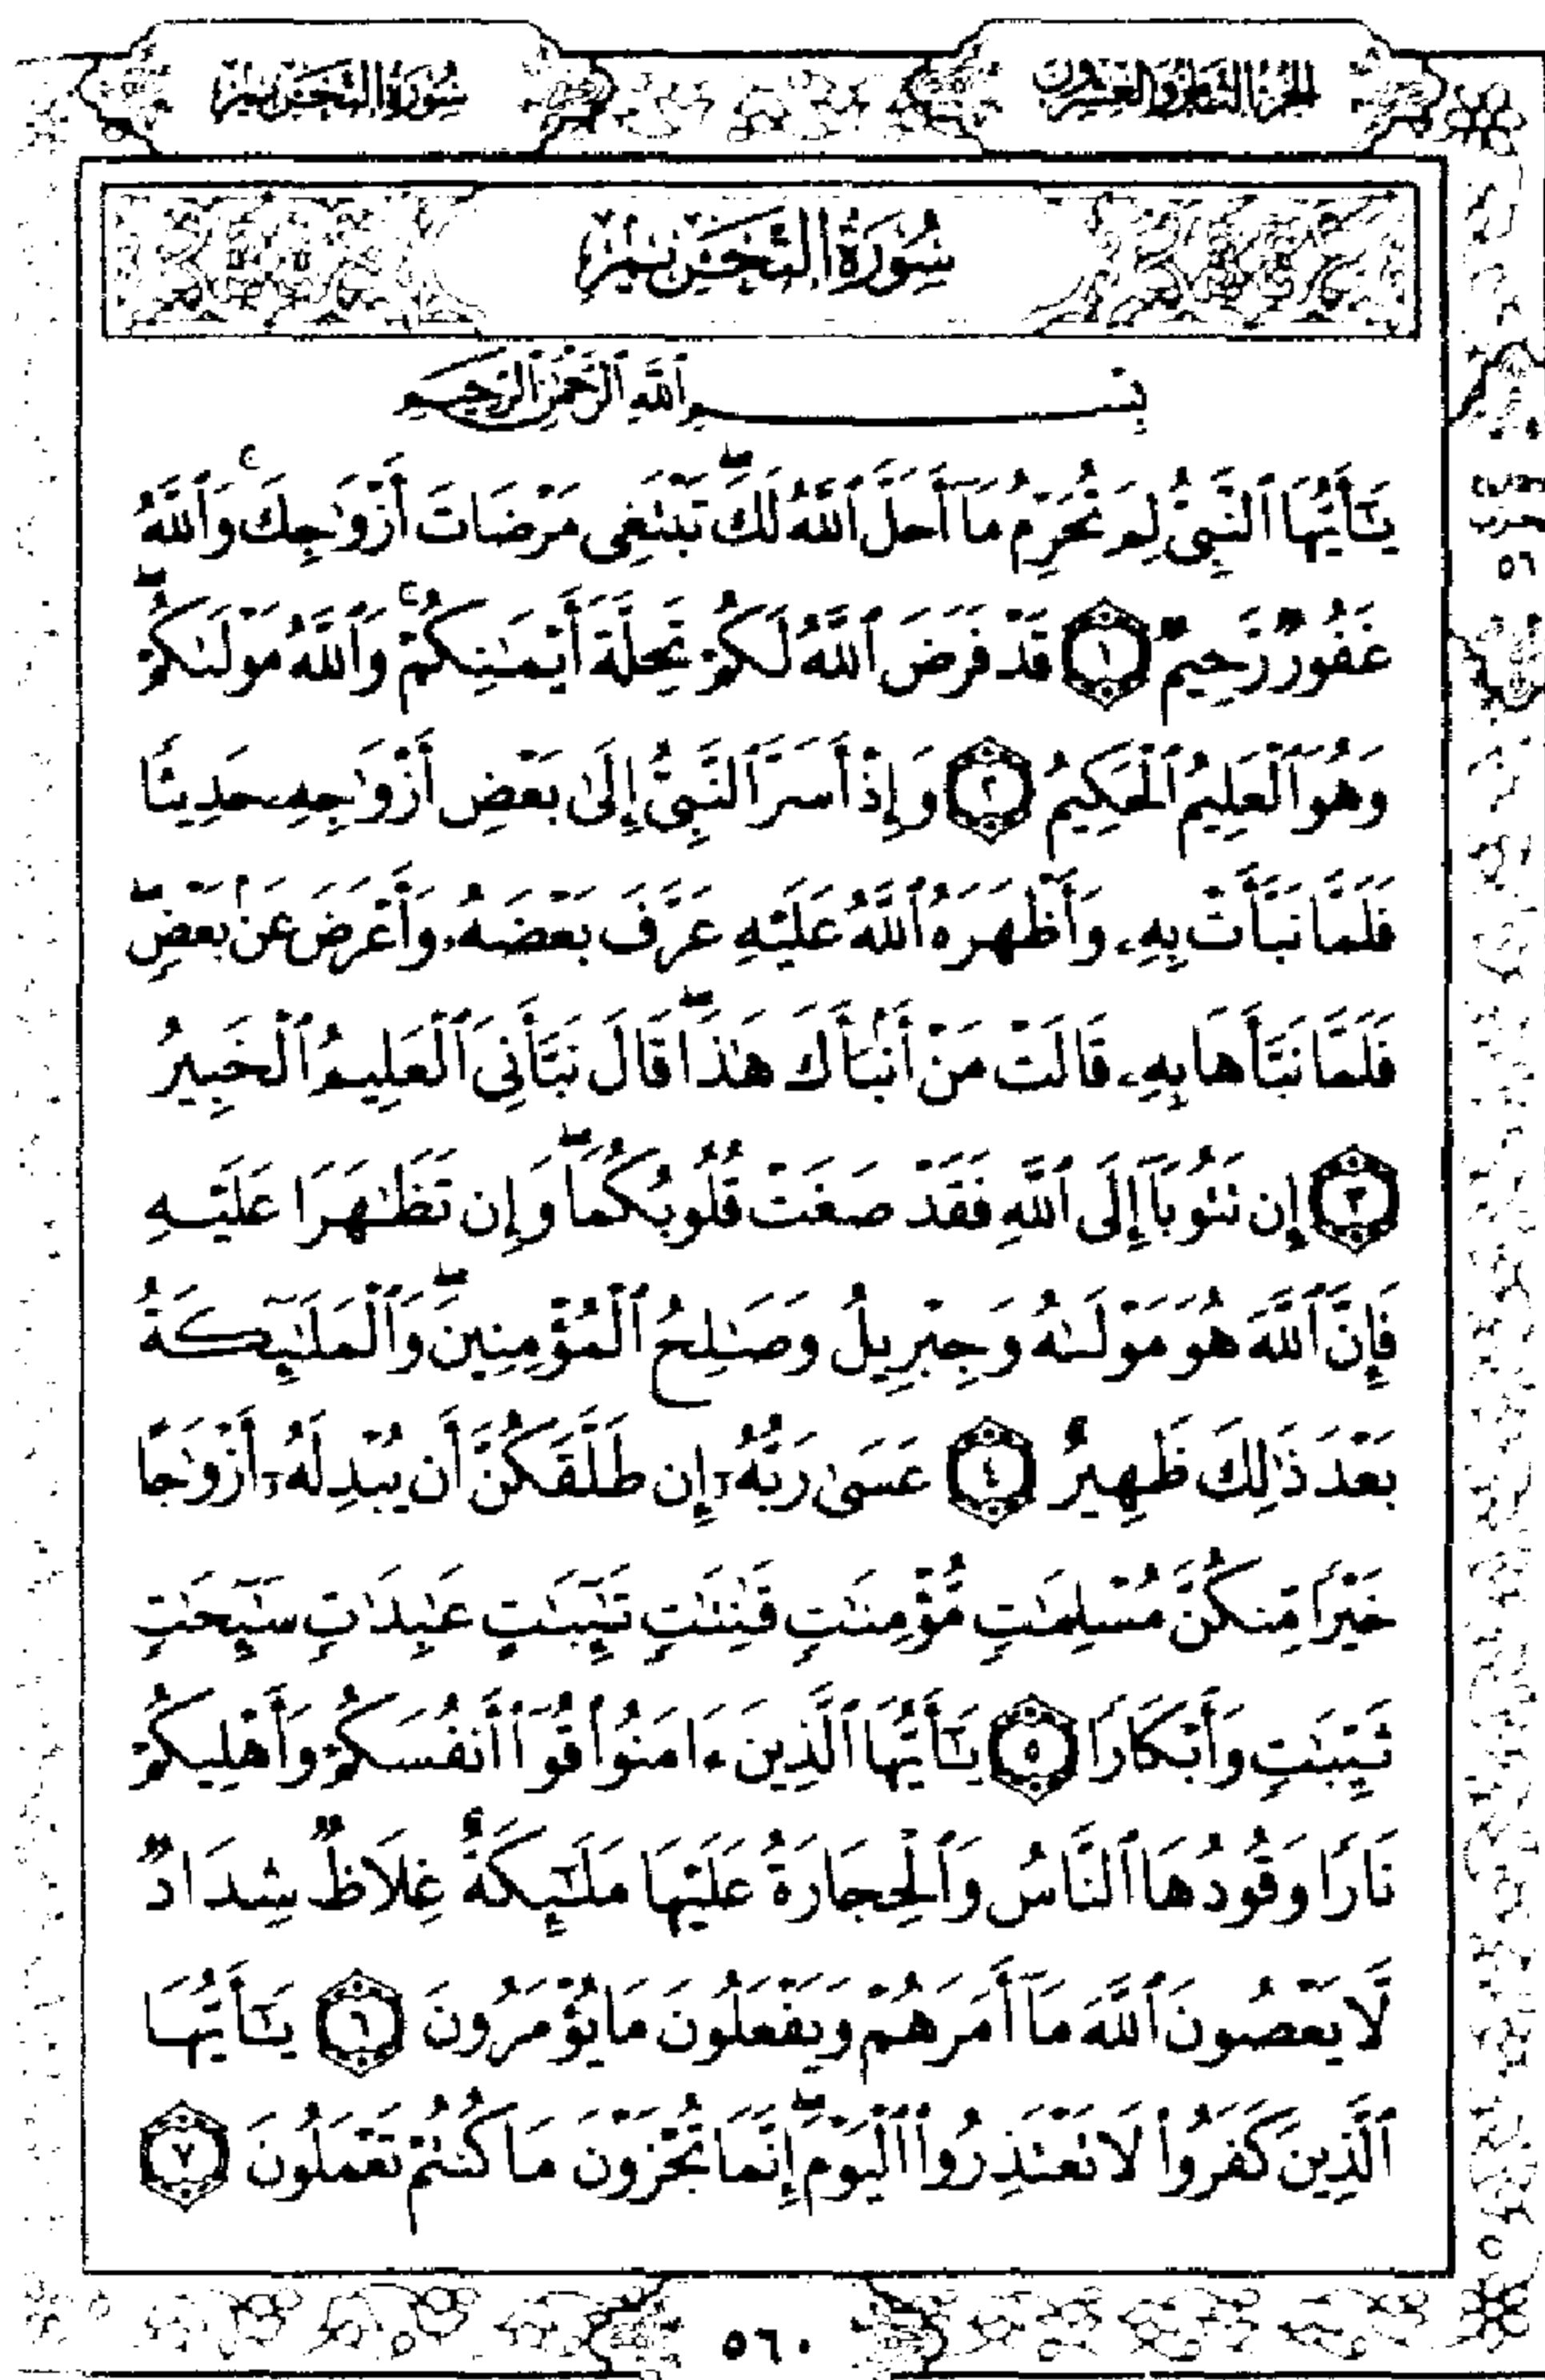 الجزء الثامن والعشرون
سورة التحريم
سُورَةُ التَّحْرِيمِ
بِسْمِ ٱللَّهِ ٱلرَّحْمَٰنِ ٱلرَّحِيمِ
يَٰٓأَيُّهَا ٱلنَّبِىُّ لِمَ تُحَرِّمُ مَآ أَحَلَّ ٱللَّهُ لَكَ ۖ تَبْتَغِى مَرْضَاتَ أَزْوَٰجِكَ ۚ وَٱللَّهُ
غَفُورٌ رَّحِيمٌ ١ قَدْ فَرَضَ ٱللَّهُ لَكُمْ تَحِلَّةَ أَيْمَٰنِكُمْ ۚ وَٱللَّهُ مَوْلَىٰكُمْ ۖ
وَهُوَ ٱلْعَلِيمُ ٱلْحَكِيمُ ٢ وَإِذْ أَسَرَّ ٱلنَّبِىُّ إِلَىٰ بَعْضِ أَزْوَٰجِهِۦ حَدِيثًا
فَلَمَّا نَبَّأَتْ بِهِۦ وَأَظْهَرَهُ ٱللَّهُ عَلَيْهِ عَرَّفَ بَعْضَهُۥ وَأَعْرَضَ عَنۢ بَعْضٍ ۖ
فَلَمَّا نَبَّأَهَا بِهِۦ قَالَتْ مَنْ أَنۢبَأَكَ هَٰذَا ۖ قَالَ نَبَّأَنِىَ ٱلْعَلِيمُ ٱلْخَبِيرُ
٣ إِن تَتُوبَآ إِلَى ٱللَّهِ فَقَدْ صَغَتْ قُلُوبُكُمَا ۖ وَإِن تَظَٰهَرَا عَلَيْهِ
فَإِنَّ ٱللَّهَ هُوَ مَوْلَىٰهُ وَجِبْرِيلُ وَصَٰلِحُ ٱلْمُؤْمِنِينَ ۖ وَٱلْمَلَٰٓئِكَةُ
بَعْدَ ذَٰلِكَ ظَهِيرٌ ٤ عَسَىٰ رَبُّهُۥٓ إِن طَلَّقَكُنَّ أَن يُبْدِلَهُۥٓ أَزْوَٰجًا
خَيْرًا مِّنكُنَّ مُسْلِمَٰتٍ مُّؤْمِنَٰتٍ قَٰنِتَٰتٍ تَٰٓئِبَٰتٍ عَٰبِدَٰتٍ سَٰٓئِحَٰتٍ
ثَيِّبَٰتٍ وَأَبْكَارًا ٥ يَٰٓأَيُّهَا ٱلَّذِينَ ءَامَنُوا۟ قُوٓا۟ أَنفُسَكُمْ وَأَهْلِيكُمْ
نَارًا وَقُودُهَا ٱلنَّاسُ وَٱلْحِجَارَةُ عَلَيْهَا مَلَٰٓئِكَةٌ غِلَاظٌ شِدَادٌ
لَّا يَعْصُونَ ٱللَّهَ مَآ أَمَرَهُمْ وَيَفْعَلُونَ مَا يُؤْمَرُونَ ٦ يَٰٓأَيُّهَا
ٱلَّذِينَ كَفَرُوا۟ لَا تَعْتَذِرُوا۟ ٱلْيَوْمَ ۖ إِنَّمَا تُجْزَوْنَ مَا كُنتُمْ تَعْمَلُونَ ٧
حزب
٥٦
٥٦٠